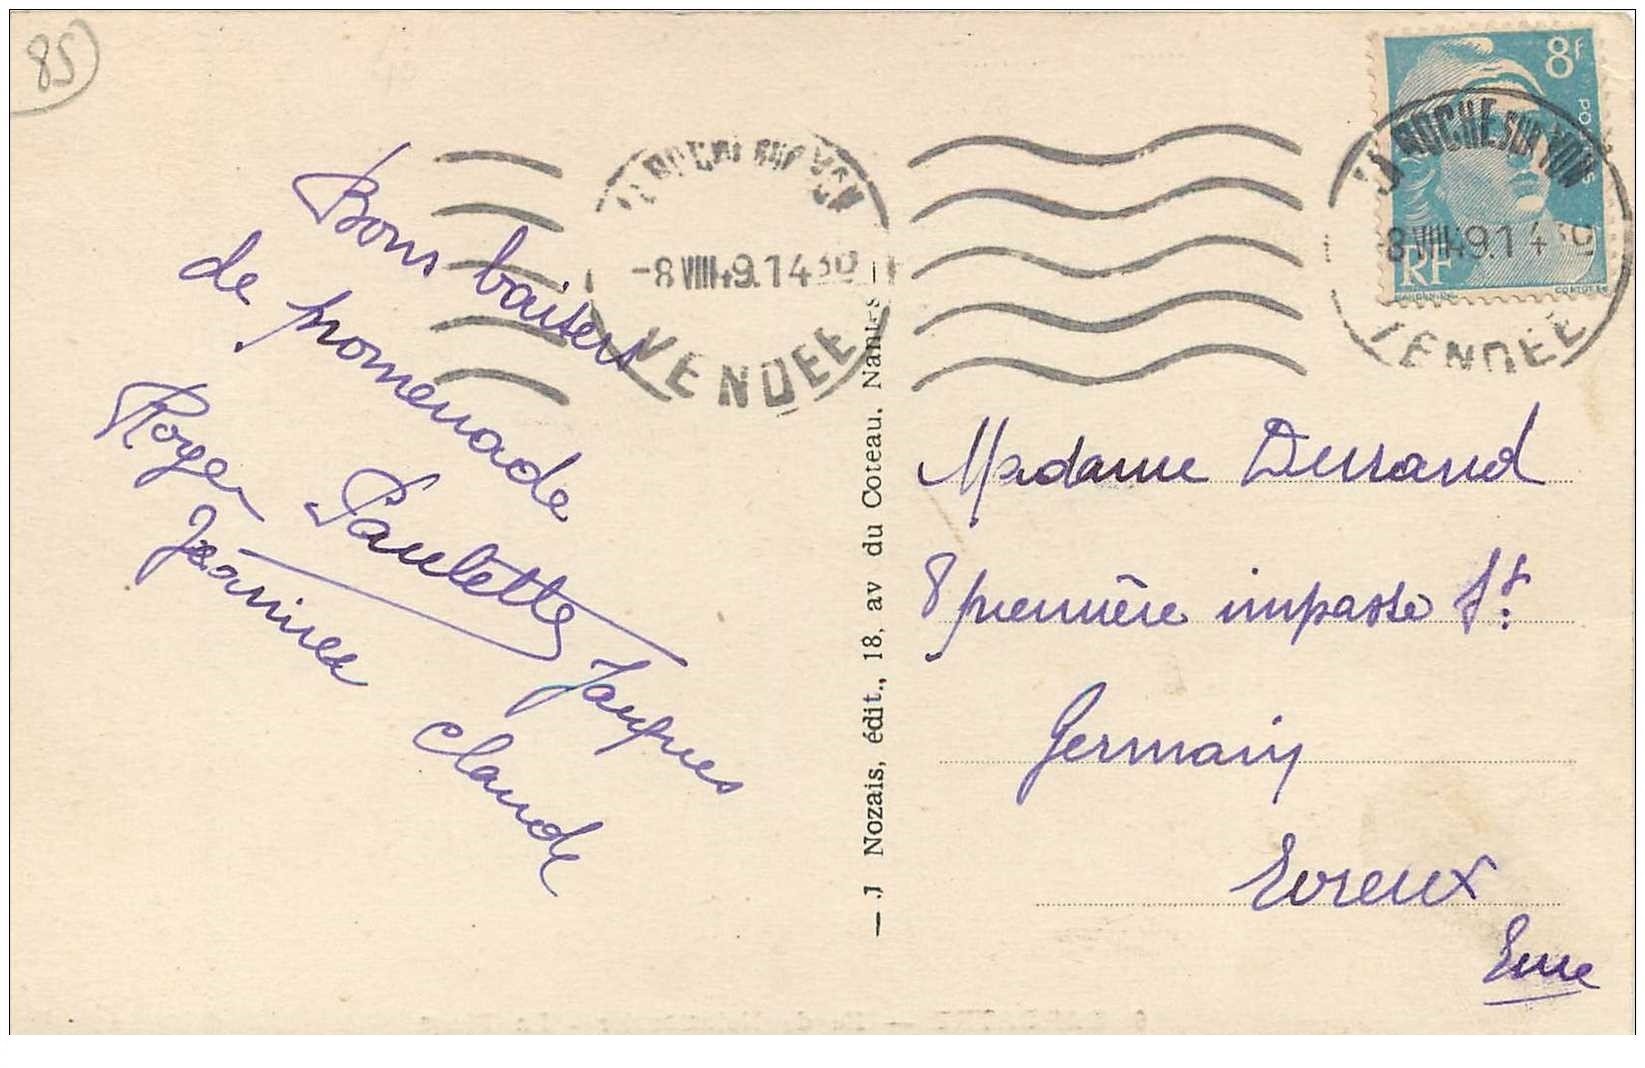 85
LA ROCHE SUR YON
-8 VIII 49.14 30
VENDEE
8f
Postes
RF
LA ROCHE SUR YON
-8 VIII 49.14 30
VENDEE
Bons baisers
de promenade
Roger Paulette Jacques
Jeannine Claude
— J Nozais, édit., 18, av du Coteau. Nantes —
Madame Durand
8 première impasse St
Germain
Evreux
Eure